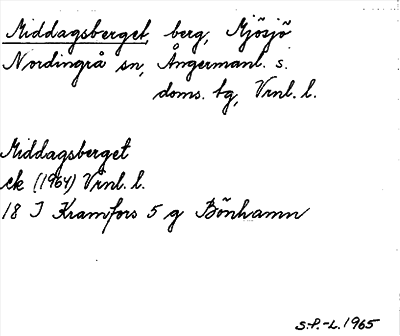 Middagsberget, berg, Mjösjö
Nordingrå sn, Ångermanl. s.
doms. tg, Vrnl. l.
Middagsberget
ek (1964) Vrnl. l.
18 I Kramfors 5 g Bönhamn
S.P.-L. 1965